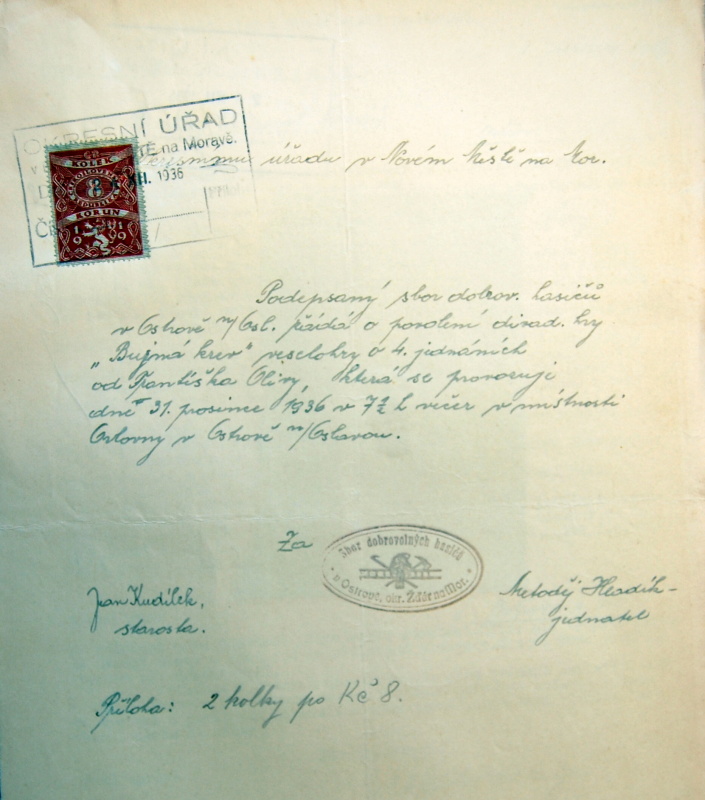 OKRESNÍ ÚŘAD
V MĚSTĚ na Moravě.
XII. 1936
KOLEK
8
KORUN
1919
úřadu v Novém Městě na Mor.
Podepsaný sbor dobrov. hasičů
v Ostrově n/Osl. žádá o povolení divad. hry
„Bujná krev" veselohry o 4. jednáních
od Františka Olivy, která se provozuje
dne 31. prosince 1936 v 7½ h večer v místnosti
Orlovny v Ostrově n/Oslavou.
Za
Sbor dobrovolných hasičů
v Ostrově, okr. Žďár na Mor.
Jan Kudílek,
starosta.
Metoděj Hladík -
jednatel
Příloha: 2 kolky po Kč 8.